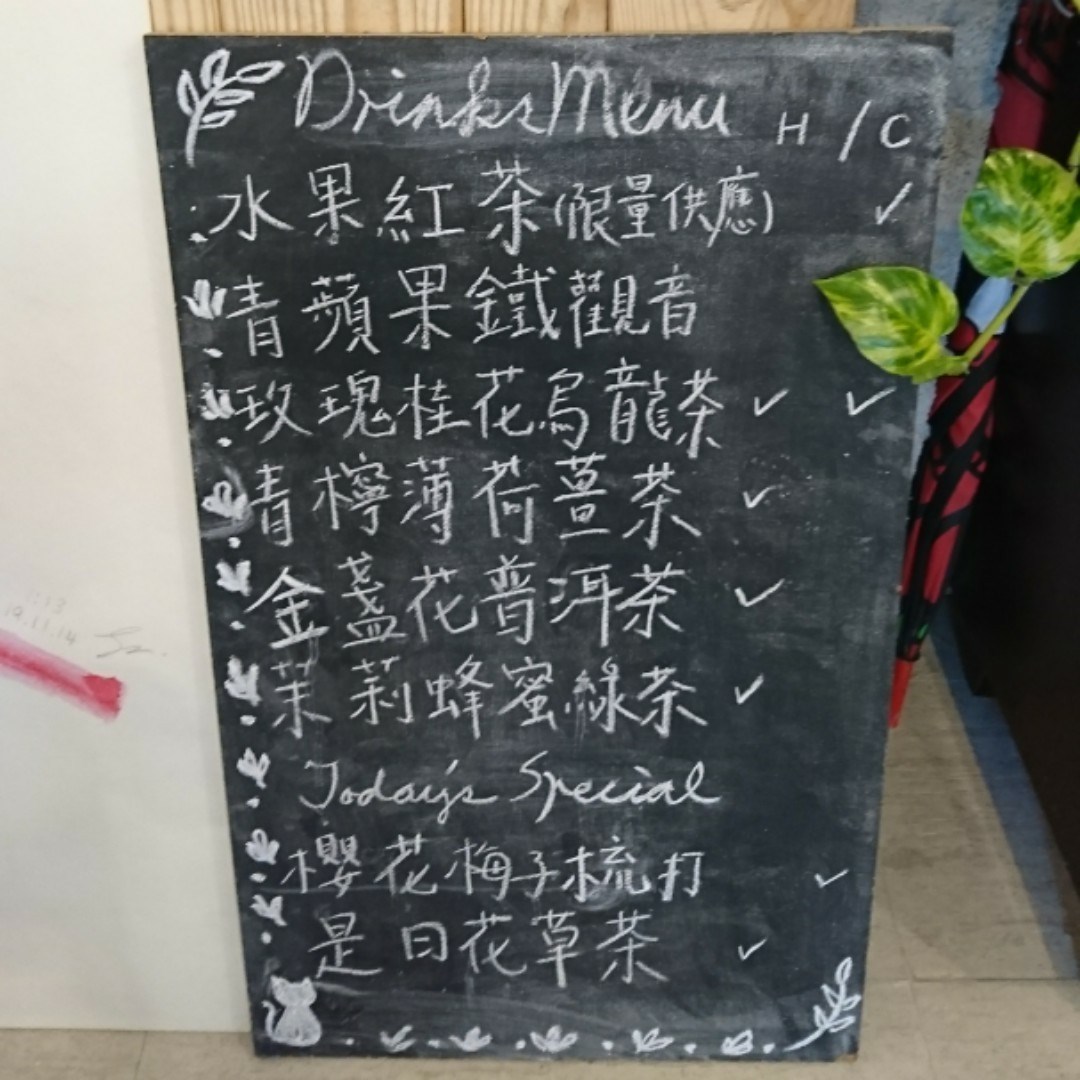 Drinks Menu H / C
水果紅茶(限量供應) ✓
青蘋果鐵觀音
玫瑰桂花烏龍茶 ✓ ✓
青檸薄荷薑茶 ✓
金盞花普洱茶 ✓
茉莉蜂蜜綠茶 ✓
Today's Special
櫻花梅子梳打 ✓
是日花草茶 ✓